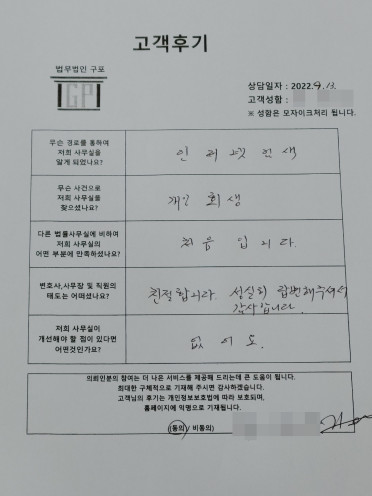 고객후기
법무법인 구포
IGPI
상담일자 : 2022.9.13.
고객성함 :
※ 성함은 모자이크처리 됩니다.
무슨 경로를 통하여
저희 사무실을
알게 되었나요?
인터넷검색
무슨 사건으로
저희 사무실을
찾으셨나요?
개인회생
다른 법률사무실에 비하여
저희 사무실의
어떤 부분에 만족하셨나요?
처음입니다.
변호사,사무장 및 직원의
태도는 어떠셨나요?
친절합니다. 성실히 답변해주셔서
감사합니다.
저희 사무실이
개선해야 할 점이 있다면
어떤것인가요?
없어요.
의뢰인분의 참여는 더 나은 서비스를 제공해 드리는데 큰 도움이 됩니다.
최대한 구체적으로 기재해 주시면 감사하겠습니다.
고객님의 후기는 개인정보보호법에 따라 보호되며,
홈페이지에 익명으로 기재됩니다.
(동의 / 비동의)